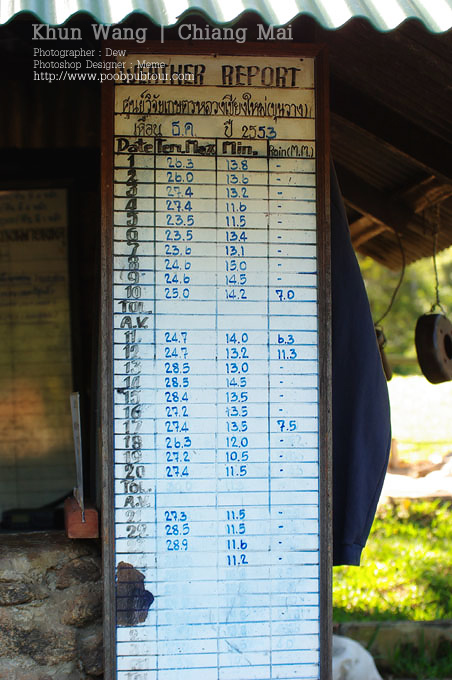 Khun Wang | Chiang Mai
Photographer : Dew
Photoshop Designer : Meme
http://www.poobpubtour.com
WEATHER REPORT
ศูนย์วิจัยเกษตรหลวงเชียงใหม่(ขุนวาง)
เดือน ธ.ค. ปี 2553
Date Tem.Max Min. Rain(M.M.)
1 26.3 13.8 -
2 26.0 13.6 -
3 27.4 13.2 -
4 27.4 11.6 -
5 23.5 11.5 -
6 23.5 13.4 -
7 23.6 13.1 -
8 24.6 15.0 -
9 24.6 14.5 -
10 25.0 14.2 7.0
TOL.
A.V.
11 24.7 14.0 6.3
12 24.7 13.2 11.3
13 28.5 13.0 -
14 28.5 14.5 -
15 28.4 13.5 -
16 27.2 13.5 -
17 27.4 13.5 7.5
18 26.3 12.0 -
19 27.2 10.5 -
20 27.4 11.5 -
TOL.
A.V.
21 27.3 11.5 -
22 28.5 11.5 -
28.9 11.6 -
11.2 -